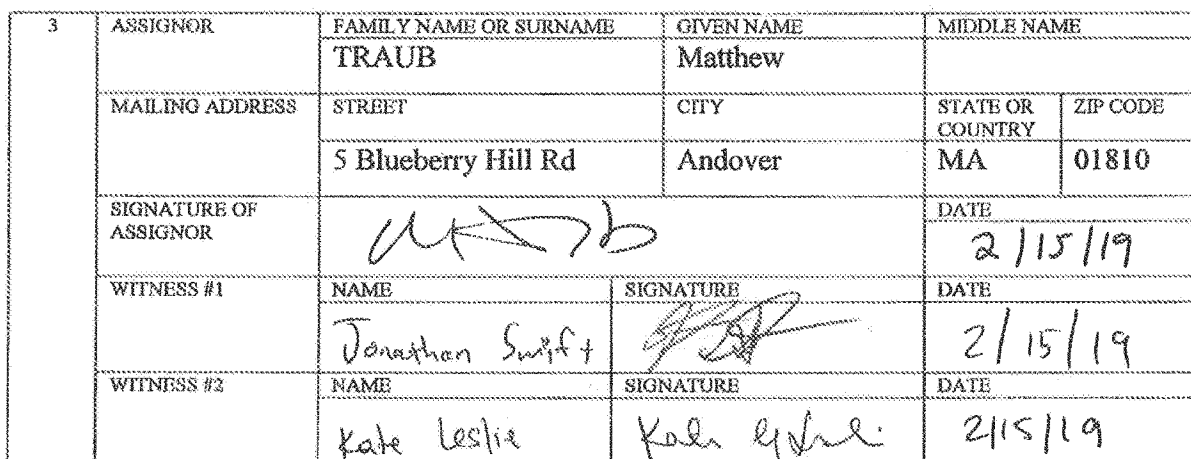 3 ASSIGNOR FAMILY NAME OR SURNAME GIVEN NAME MIDDLE NAME
TRAUB Matthew
MAILING ADDRESS STREET CITY STATE OR COUNTRY ZIP CODE
5 Blueberry Hill Rd Andover MA 01810
SIGNATURE OF ASSIGNOR DATE
2/15/19
WITNESS #1 NAME SIGNATURE DATE
Jonathan Swift 2/15/19
WITNESS #2 NAME SIGNATURE DATE
Kate Leslie 2/15/19